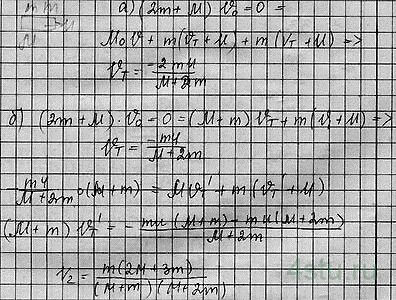 m m
M → u
а) (2m + M) v₀ = 0 =
M₀ v + m(v_T + u) + m (v_T + u) =>
v_T = -2mu / M + 2m
б) (2m + M) · v₀ = 0 = (M + m) v_T + m(v + u) =>
v_T = -mu / M + 2m
- mu / M + 2m · (M + m) = M v_T' + m (v_T' + u)
(M + m) v_T' = - mu (M + m) - mu (M + 2m) / M + 2m
v₂ = m(2M + 3m) / (M + m) (M + 2m)
4stu.ru